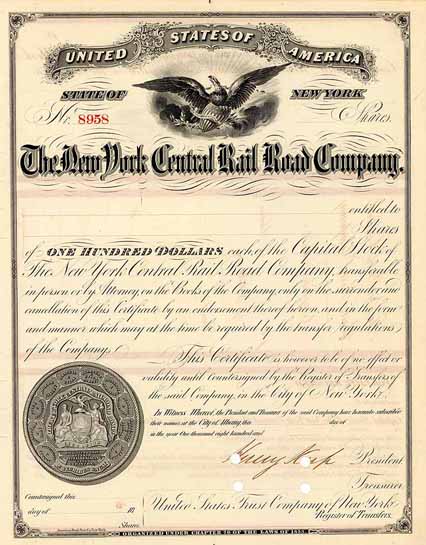 UNITED STATES OF AMERICA
STATE OF NEW YORK
No. 8958 Shares.
The New York Central Rail Road Company.
entitled to
Shares
of ONE HUNDRED DOLLARS each of the Capital Stock of
The New York Central Rail Road Company, transferable
in person or by Attorney on the Books of the Company, only on the surrender and
cancellation of this Certificate by an endorsement thereof hereon, and in the form
and manner which may at the time be required by the transfer regulations
of the Company.
This Certificate is however to be of no effect or
validity until Countersigned by the Register of Transfers of
the said Company, in the City of New York.
In Witness Whereof, the President and Treasurer of the said Company have hereunto subscribed
their names at the City of Albany, this day of
in the year One thousand eight hundred and
President
Treasurer
Countersigned this
day of 18
United States Trust Company of New York
Register of Transfers.
Shares
ORGANIZED UNDER CHAPTER 76 OF THE LAWS OF 1853.